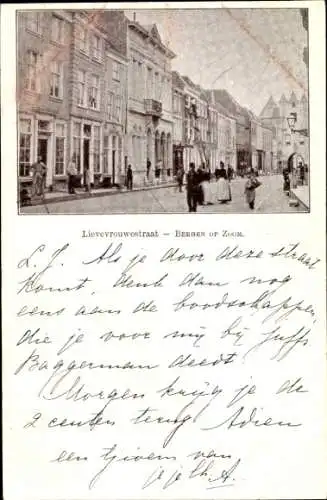 Lievevrouwestraat — Bergen op Zoom.
L. J. Als je door deze straat
komt, denk dan nog
eens aan de boodschappen,
die je voor mij bij Juffr
Baggerman deedt.
Morgen krijg je de
2 centen terug. Adieu
een van
je